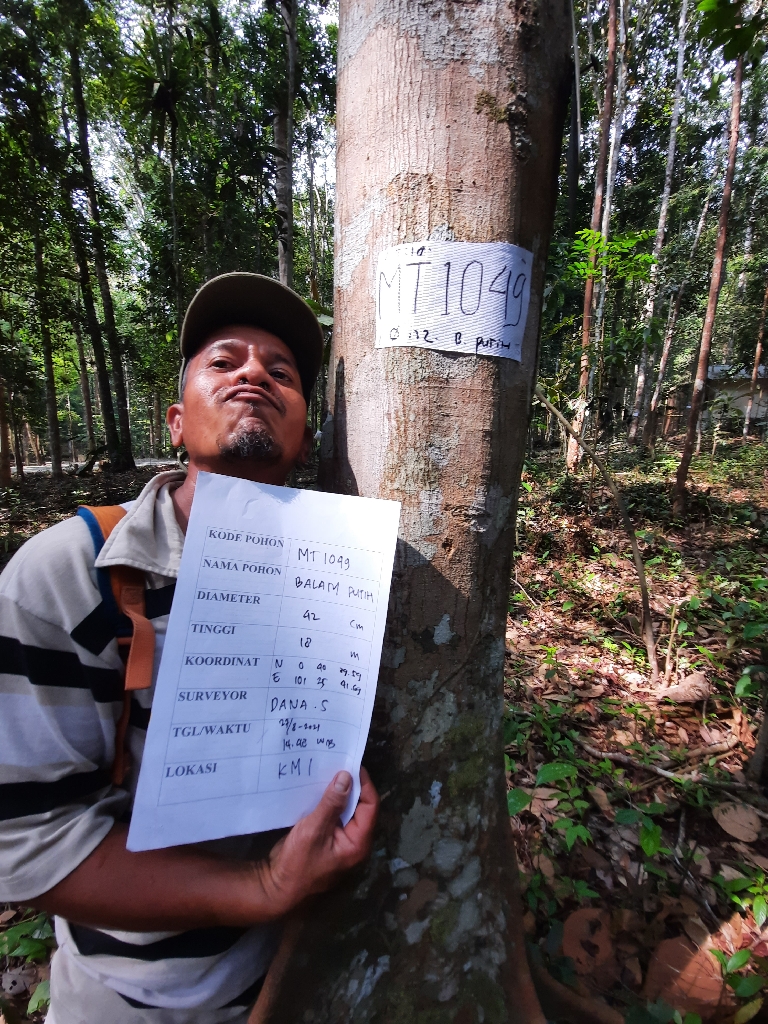 MT 1049
B. PUTIH
KODE POHON MT 1049
NAMA POHON BALAM PUTIH
DIAMETER 42 cm
TINGGI 18 m
KOORDINAT N 0 40
E 101 25
SURVEYOR DANA.S
TGL/WAKTU
14.48 WIB
LOKASI KM 1